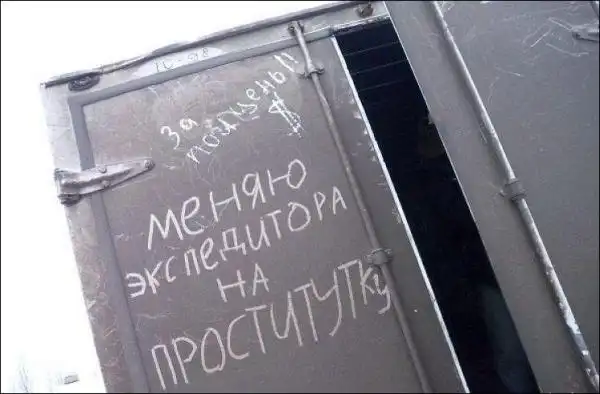 ТС-98
За
полцены!!
$
Меняю
экспедитора
на
проститутку